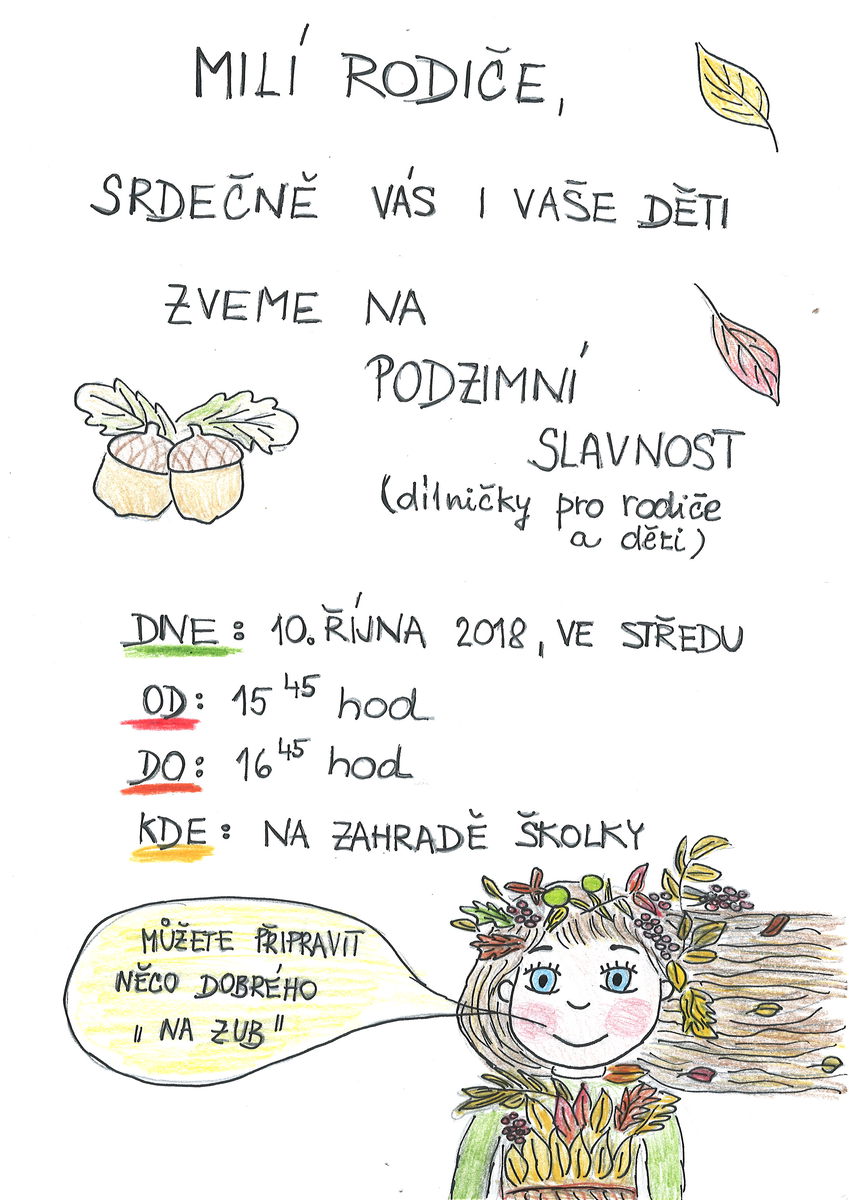 MILÍ RODIČE,
SRDEČNĚ VÁS I VAŠE DĚTI
ZVEME NA
PODZIMNÍ
SLAVNOST
(dílničky pro rodiče
a děti)
DNE: 10. ŘÍJNA 2018, VE STŘEDU
OD: 15 45 hod
DO: 16 45 hod
KDE: NA ZAHRADĚ ŠKOLKY
MŮŽETE PŘIPRAVIT
NĚCO DOBRÉHO
„NA ZUB"